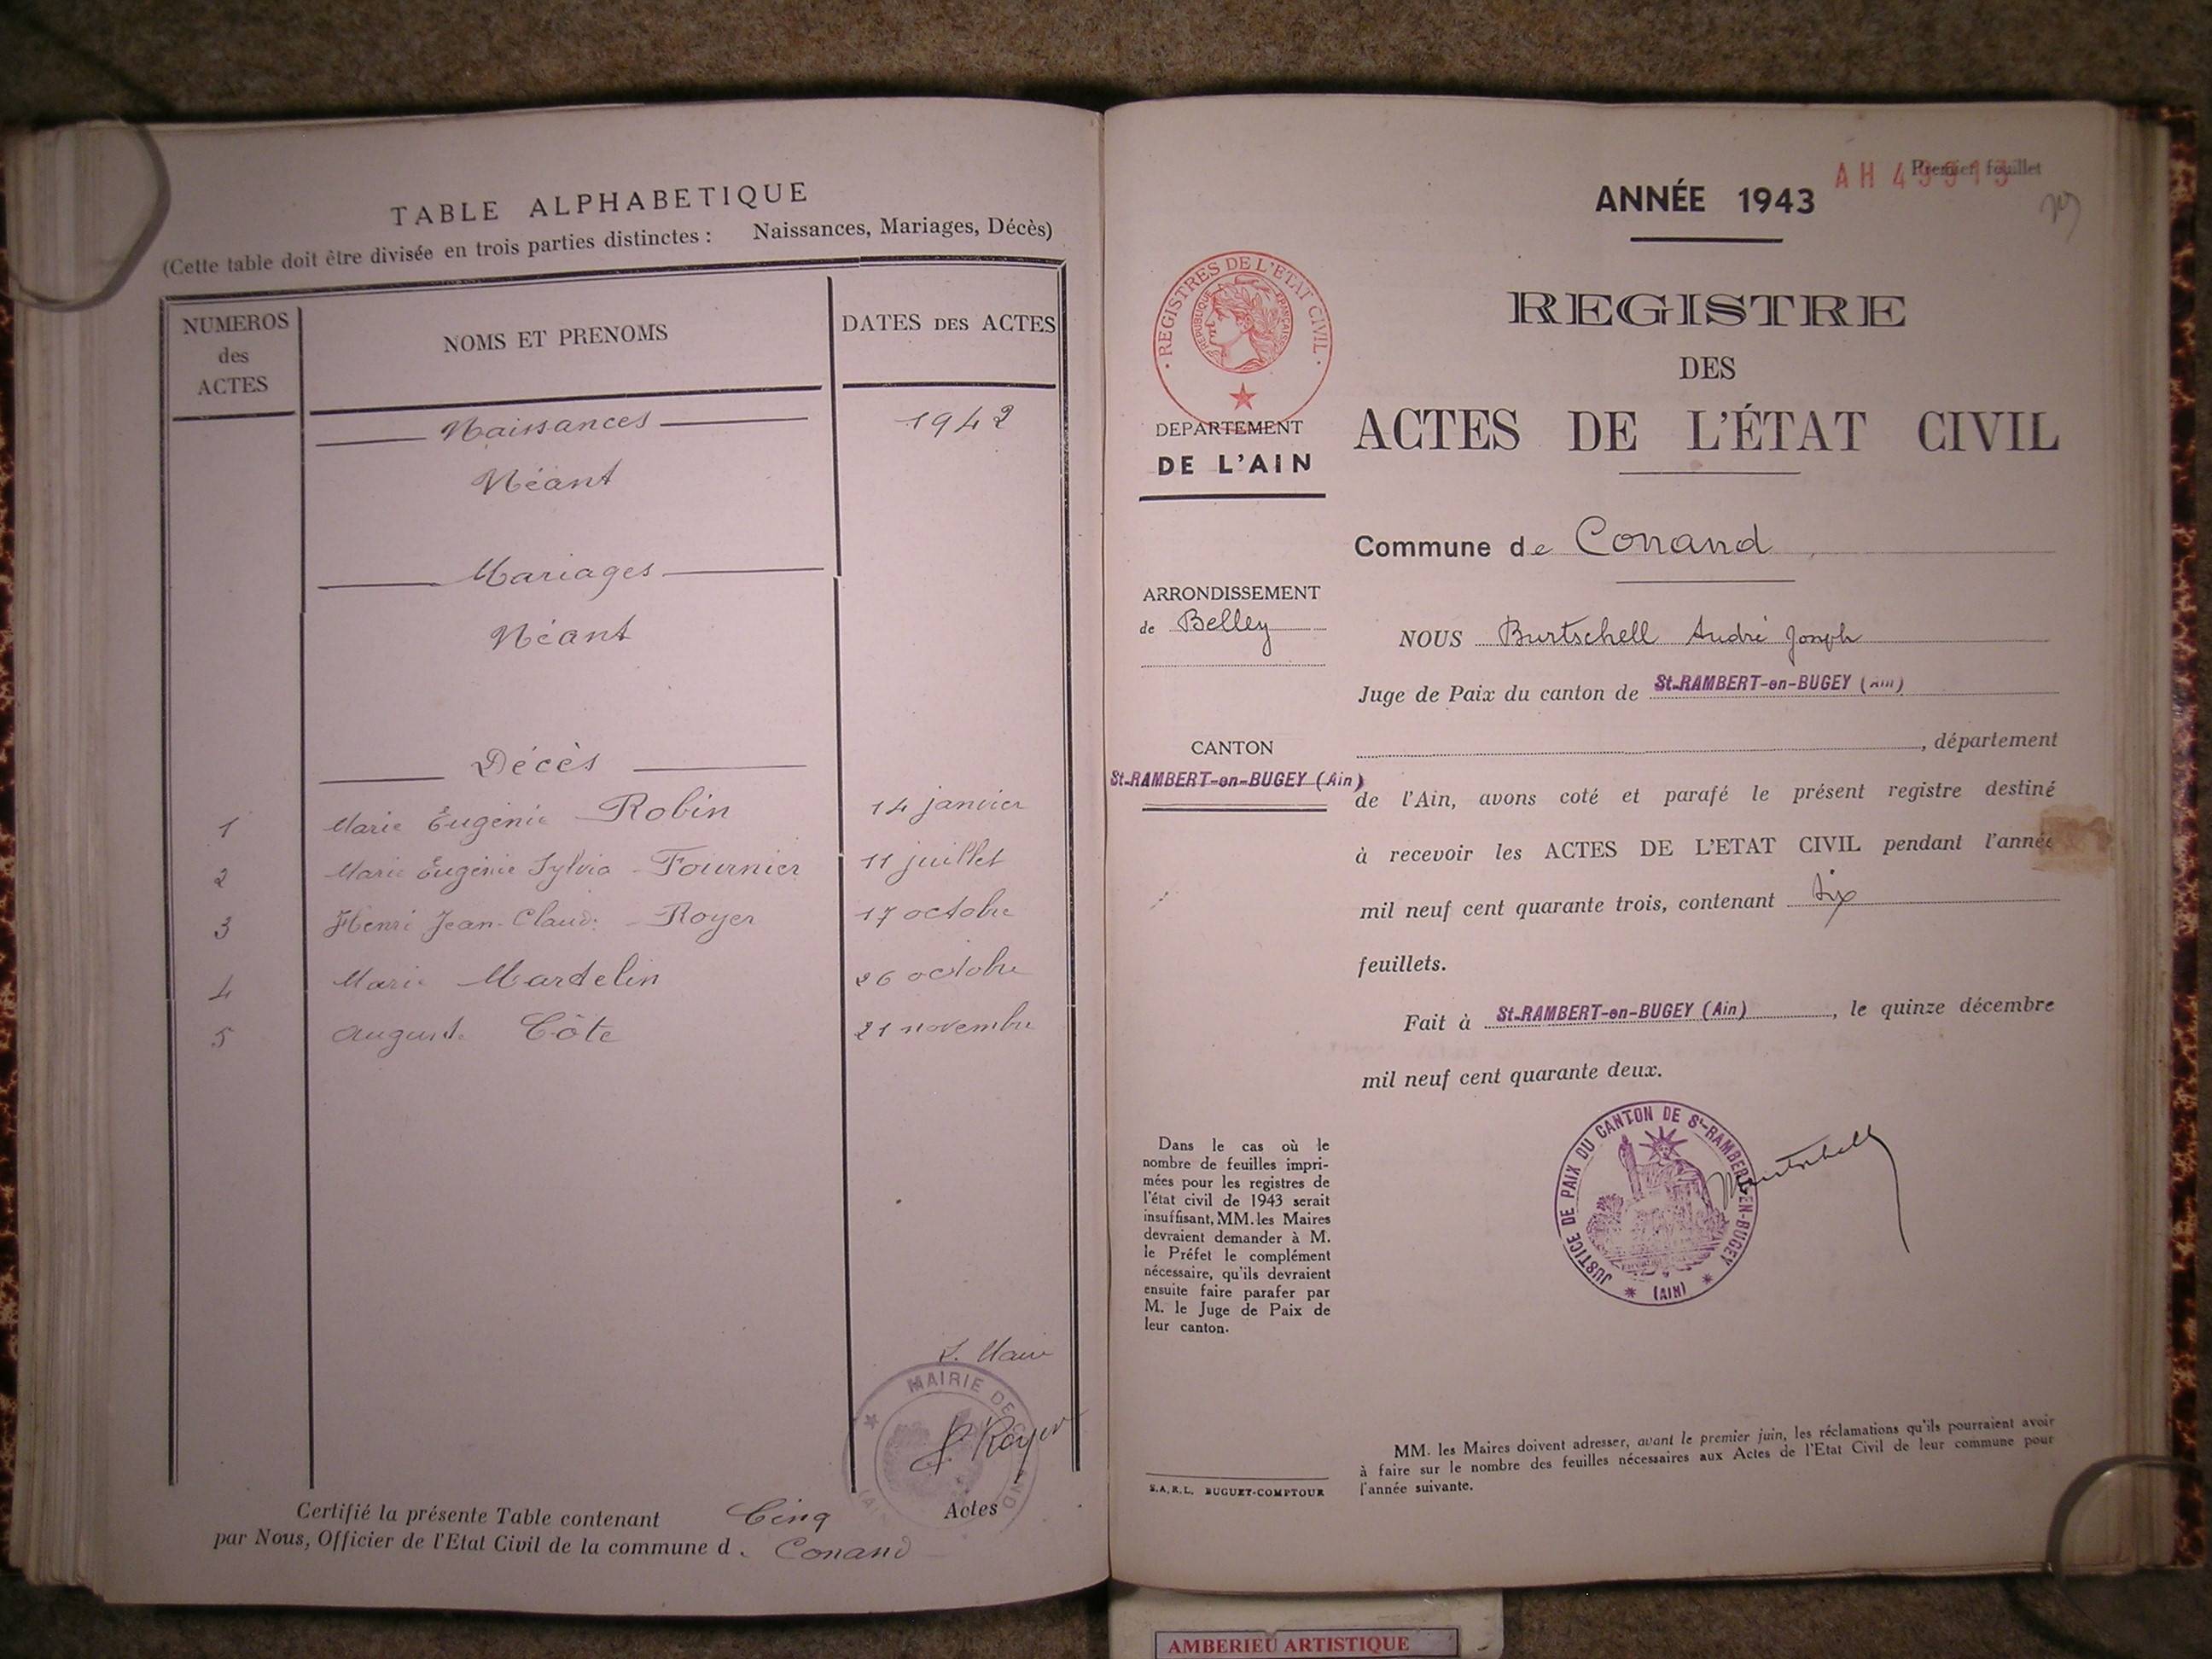 TABLE ALPHABETIQUE
(Cette table doit être divisée en trois parties distinctes : Naissances, Mariages, Décès)
NUMEROS des ACTES
NOMS ET PRENOMS
DATES DES ACTES
Naissances 1942
Néant
Mariages
Néant
Décès
1 Marie Eugénie Robin 14 janvier
2 Marie Eugénie Sylvia Fournier 11 juillet
3 Henri Jean-Claude Royer 17 octobre
4 Marie Martelin 26 octobre
5 August. Côte 21 novembre
L. Maire
MAIRIE DE CONAND
(AIN)
J. Royer
Certifié la présente Table contenant Cinq Actes
par Nous, Officier de l'Etat Civil de la commune d. Conand
Premier feuillet
ANNÉE 1943
REGISTRES DE L'ETAT CIVIL
REPUBLIQUE FRANÇAISE
DEPARTEMENT
DE L'AIN
ARRONDISSEMENT
de Belley
CANTON
St-RAMBERT-en-BUGEY (Ain)
Dans le cas où le
nombre de feuilles impri-
mées pour les registres de
l'état civil de 1943 serait
insuffisant, MM. les Maires
devraient demander à M.
le Préfet le complément
nécessaire, qu'ils devraient
ensuite faire parafer par
M. le Juge de Paix de
leur canton.
S.A.R.L. BUGUET-COMPTOUR
REGISTRE
DES
ACTES DE L'ÉTAT CIVIL
Commune de Conand
NOUS Burtschell André Joseph
Juge de Paix du canton de St-RAMBERT-en-BUGEY (Ain)
, département
de l'Ain, avons coté et parafé le présent registre destiné
à recevoir les ACTES DE L'ETAT CIVIL pendant l'année
mil neuf cent quarante trois, contenant six
feuillets.
Fait à St-RAMBERT-en-BUGEY (Ain), le quinze décembre
mil neuf cent quarante deux.
JUSTICE DE PAIX DU CANTON DE St-RAMBERT-EN-BUGEY
(AIN)
Burtschell
MM. les Maires doivent adresser, avant le premier juin, les réclamations qu'ils pourraient avoir
à faire sur le nombre des feuilles nécessaires aux Actes de l'Etat Civil de leur commune pour
l'année suivante.
AMBERIEU ARTISTIQUE